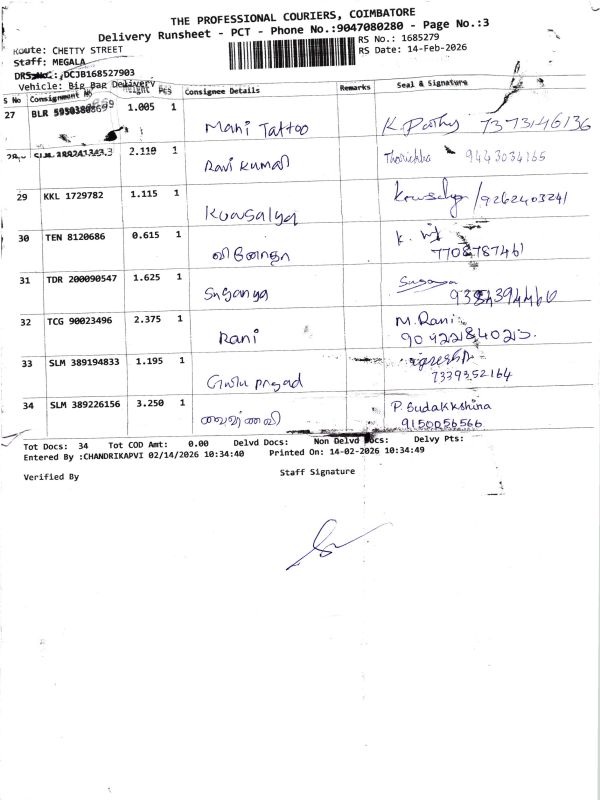 THE PROFESSIONAL COURIERS, COIMBATORE
Delivery Runsheet - PCT - Phone No.:9047080280 - Page No.:3
Route: CHETTY STREET
RS No.: 1685279
Staff: MEGALA
RS Date: 14-Feb-2026
DRS No.: DCJB168527903
Vehicle: Big Bag Delivery
S No Consignment No Weight Pcs Consignee Details Remarks Seal & Signature
27 BLR 1.005 1 Mani Tattoo K. Parthy 7373146136
2.110 1 Ravi Kumar 9443034165
29 KKL 1729782 1.115 1 Kowsalya Kowsalya /9262403241
30 TEN 8120686 0.615 1 வினோதா K. 7708787461
31 TDR 200090547 1.625 1 Suganya Suganya
32 TCG 90023496 2.375 1 Rani M. Rani
33 SLM 389194833 1.195 1 7339352164
34 SLM 389226156 3.250 1 வைஷ்ணவி P. Sudakkshina
9150056566
Tot Docs: 34 Tot COD Amt: 0.00 Delvd Docs: Non Delvd Docs: Delvy Pts:
Entered By :CHANDRIKAPVI 02/14/2026 10:34:40 Printed On: 14-02-2026 10:34:49
Verified By Staff Signature